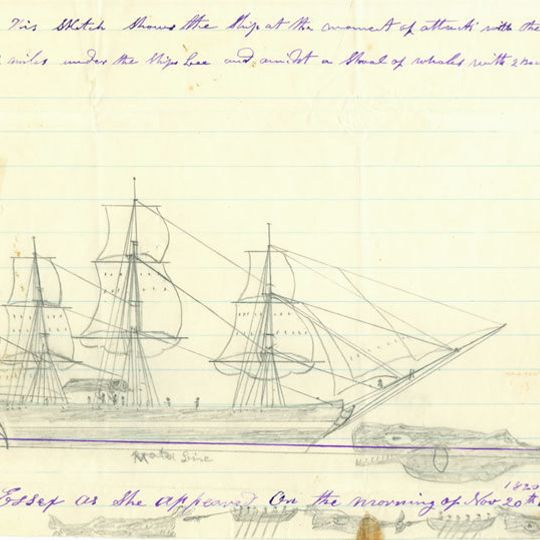 This Sketch Shows the Ship at the moment of attack with the
miles under the Ships Lee and amidst a Shoal of whales with 2
Water Line
1820
Essex as She appeared On the morning of Nov 20th